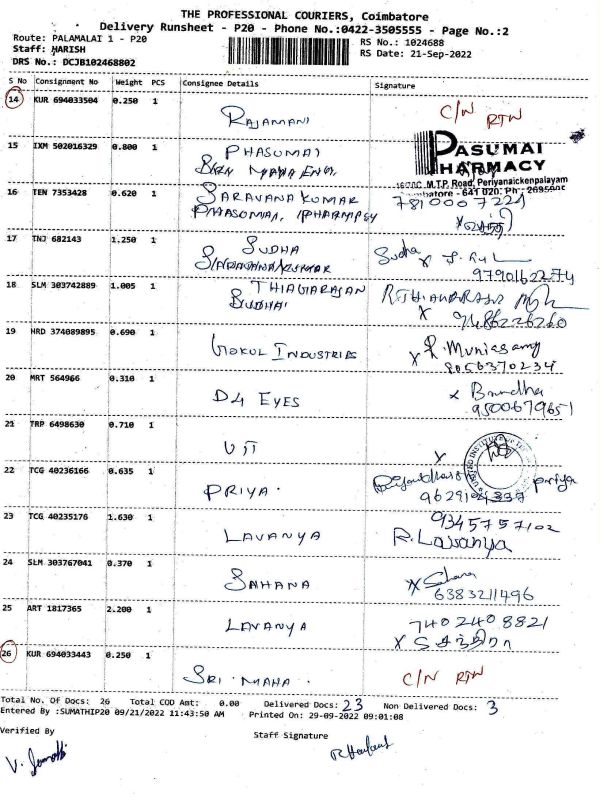 THE PROFESSIONAL COURIERS, Coimbatore
Delivery Runsheet - P20 - Phone No.:0422-3505555 - Page No.:2
Route: PALAMALAI 1 - P20
RS No.: 1024688
Staff: HARISH
RS Date: 21-Sep-2022
DRS No.: DCJB102468802
S No Consignment No Weight PCS Consignee Details Signature
14 KUR 694033504 0.250 1 RAJAMANI C/N RTN
15 IXM 502016329 0.800 1 PHASUMAI
PASUMAI PHARMACY
M.T.P. Road, Periyanaickenpalayam
16 TEN 7353428 0.620 1 SARAVANA KUMAR 7810007221
17 TNJ 682143 1.250 1 SUDHA Sudha
9790162274
18 SLM 303742889 1.005 1 THIAGARAJAN
X 9486226260
19 HRD 374089895 0.690 1 GOKUL INDUSTRIES X R. Muniasamy
8056370234
20 MRT 564966 0.310 1 D4 EYES X Brindha
9500679651
21 TRP 6498630 0.710 1 UIT X
22 TCG 40236166 0.635 1 PRIYA. priya
23 TCG 40235176 1.630 1 LAVANYA 9345757102
R. Lavanya
24 SLM 303767041 0.370 1 SAHANA X Sahana
6383211496
25 ART 1817365 2.200 1 LAVANYA 7402408821
26 KUR 694033443 0.250 1 SRI MAHA. C/N RTN
Total No. Of Docs: 26 Total COD Amt: 0.00 Delivered Docs: 23 Non Delivered Docs: 3
Entered By :SUMATHIP20 09/21/2022 11:43:50 AM Printed On: 29-09-2022 09:01:08
Verified By
Staff Signature